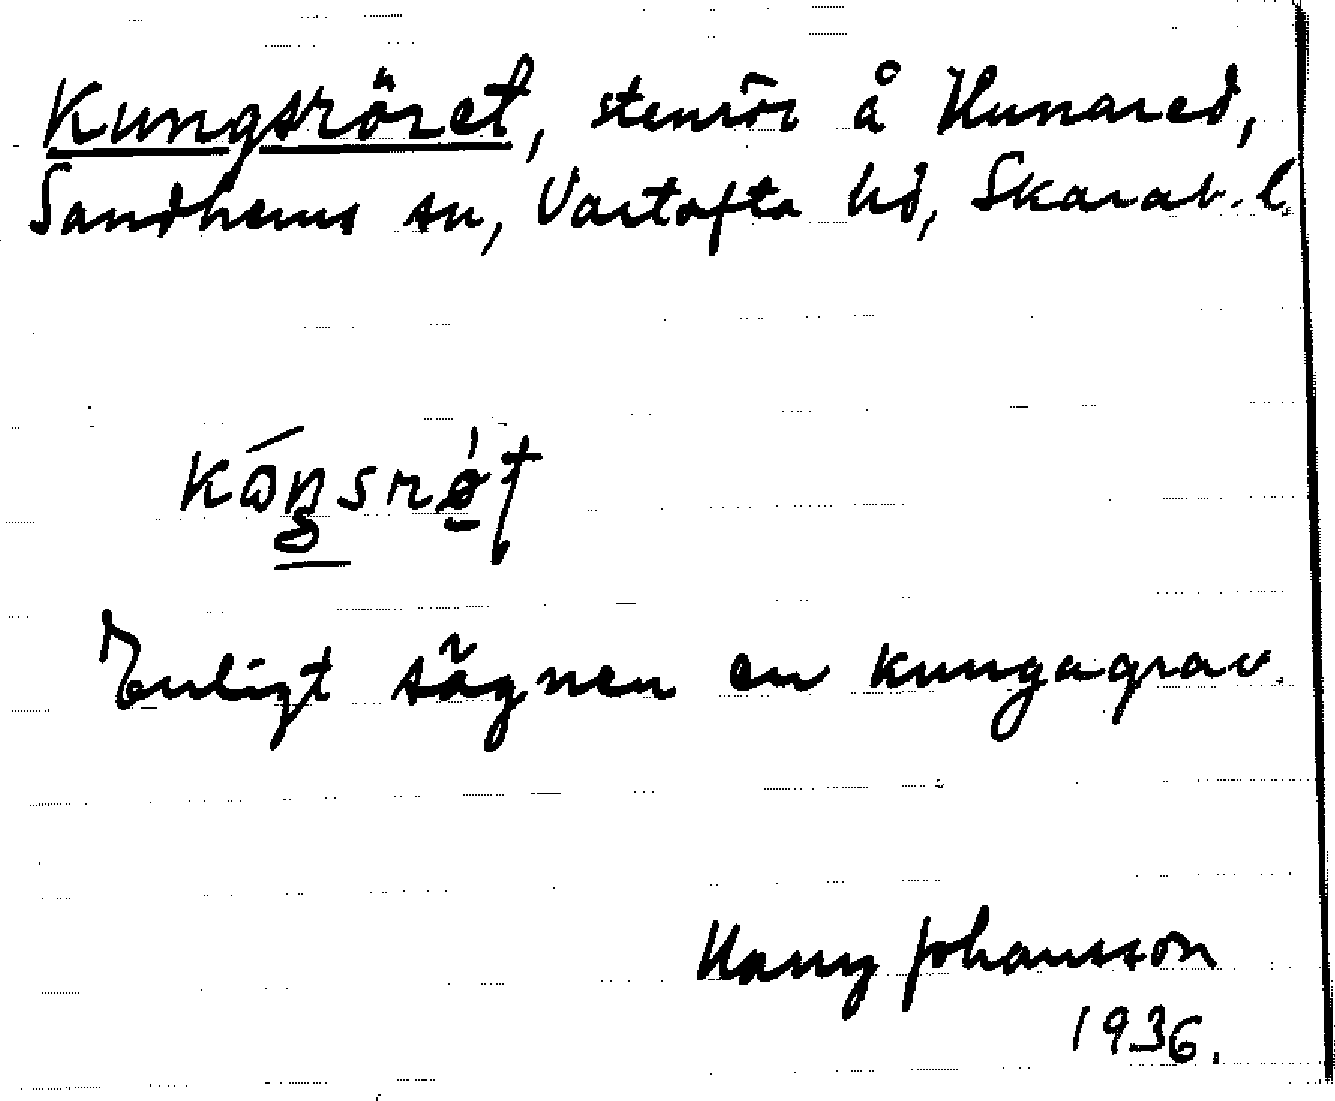 Kungsröret, stenrör å Hunared,
Sandhems sn, Vartofta hd, Skarab. l.
Enligt sägnen en kungagrav.
Harry Johansson
1936.